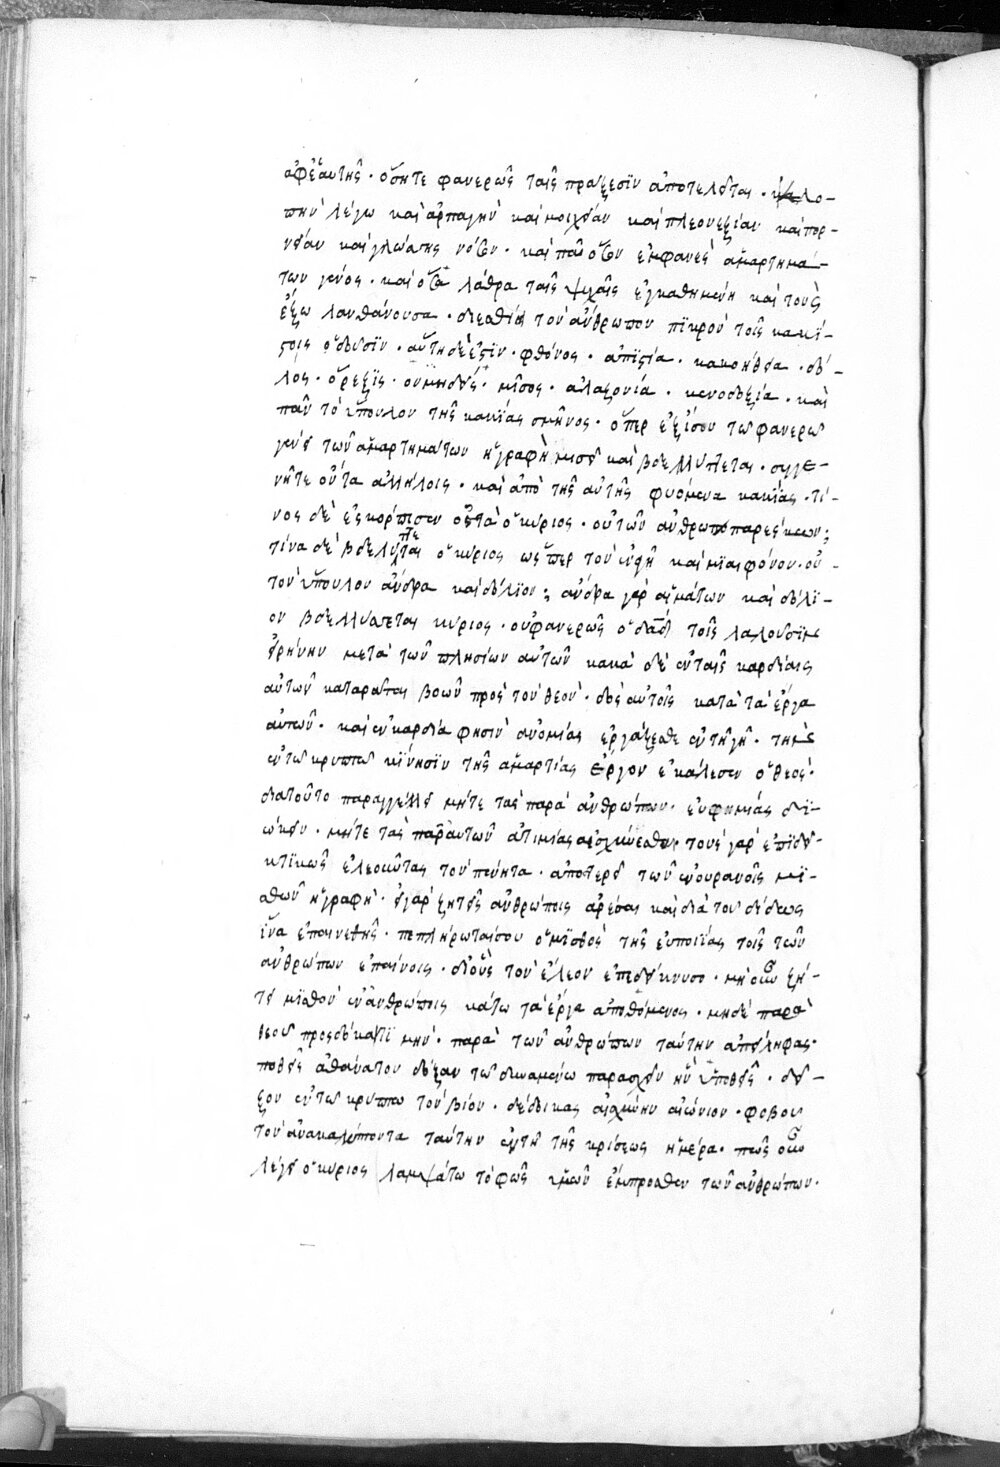 ἀφ' ἑαυτῆς · ὅσητε φανερῶς ταῖς πράξεσϊν ἀποτελεῖται · κλο-
πὴν λέγω καὶ ἁρπαγὴν καὶ μοιχείαν καὶ πλεονεξίαν καὶ πορ-
νείαν καὶ γλώσσης νόσον · καὶ πᾶν οὕτω ἐμφανὲς ἁμαρτημά-
των γένος · καὶ ὅσα λάθρα ταῖς ψυχαῖς ἐγκαθημένη καὶ τοὺς
ἔξω λανθάνουσα · διεσθίει τὸν ἄνθρωπον πϊκροῦ τοῖς κακί-
στοις ὀδυσϊν · αὕτη δὲ ἐστϊν · φθόνος · ἀπϊστία · κακοήθεια · δό-
λος · ὄρεξϊς · οὐ μηδεὶς · μῖσος · ἀλαζονία · κενοδοξία · καὶ
πᾶν τὸ ὕπουλον τῆς κακίας σμῆνος · ὅπερ ἐξίσου τῷ φανερῷ
γένει τῶν ἁμαρτημάτων ἡ γραφὴ μισεῖ καὶ βδελύττεται · συγγε-
νῆτε ὄντα ἀλλήλοις · καὶ ἀπὸ τῆς αὐτῆς φυόμενα κακίας · τί-
νος δὲ ἐσκόρπισεν ὀστᾶ ὁ κύριος · οὐ τῶν ἀνθρωπαρέσκων ;
τίνα δὲ βδελύττεται ὁ κύριος ὥσπερ τὸν ἐναγῆ καὶ μϊαιφόνον · οὐ
τὸν ὕπουλον ἄνδρα καὶ δόλϊον ; ἄνδρα γὰρ αἱμάτων καὶ δόλϊ-
ον βδελύσσεται κύριος · οὐ φανερῶς ὁ δαδ τοῖς λαλοῦσϊν
εἰρήνην μετὰ τῶν πλησίων αὐτῶν κακὰ δὲ ἐν ταῖς καρδίαις
αὐτῶν καταρᾶται βοῶν πρὸς τὸν θεόν · δὸς αὐτοῖς κατὰ τὰ ἔργα
αὐτῶν · καὶ ἐν καρδία φησὶν ἀνομίας ἐργάζεσθε ἐν τῇ γῇ · τὴν
ἐν τῶ κρυπτῶ κίνησϊν τῆς ἁμαρτίας ἔργον ἐκάλεσεν ὁ θεός ·
διατοῦτο παραγγέλλει μήτε τὰς παρὰ ἀνθρώπων · εὐφημίας δϊ-
ώκειν · μήτε τὰς παρ' αὐτῶν ἀτιμίας αἰσχύνεσθαι · τοὺς γὰρ ἐπϊδει-
κτϊκῶς ἐλεοῦντας τὸν πένητα · ἀποστερεῖ τῶν ἐν οὐρανοῖς μϊ-
σθῶν ἡ γραφή · εἰ γὰρ ζητεῖς ἀνθρώποις ἀρέσαι καὶ διὰ τοῦ δίδως
ἵνα ἐπαινεθῆς · πεπλήρωταί σου ὁ μϊσθὸς τῆς εὐποιίας τοῖς τῶν
ἀνθρώπων ἐπαίνοις · δι' οὓς τὸν ἔλεον ἐπεδείκνυσο · μὴ οὖν ζή-
τει μϊσθὸν ἐν ἀνθρώποις κάτω τὰ ἔργα ἀποθόμενος · μηδὲ παρὰ
θεοῦ προσδόκα τϊμήν · παρὰ τῶν ἀνθρώπων ταύτην ἀπείληφας ·
ποθεῖς ἀθάνατον δόξαν τῶ δυναμένω παρασχεῖν ἣν ὑποθεῖς · δεῖ-
ξον ἐν τῶ κρυπτῶ τὸν βίον · δέδοικας αἰσχύνην αἰώνιον · φοβοῦ
τὸν ἀνακαλύπτοντα ταύτην ἐν τῇ τῆς κρίσεως ἡμέρα · πῶς οὖν
λέγει ὁ κύριος λαμψάτω τὸ φῶς ὑμῶν ἔμπροσθεν τῶν ἀνθρώπων ·